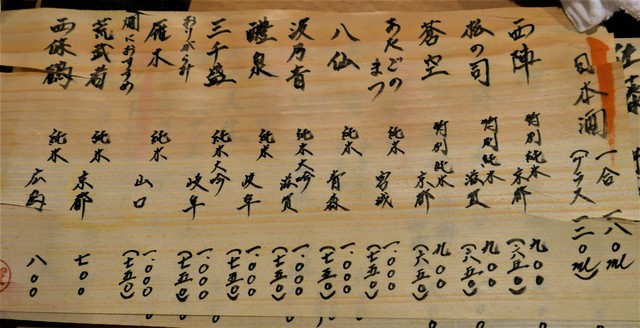 日本酒 一合 一八〇ml
(グラス 一二〇ml)
西陣 特別純米 京都 九〇〇
(六五〇)
松の司 特別純米 滋賀 九〇〇
(六五〇)
蒼空 特別純米 京都 九〇〇
(六五〇)
あたごのまつ 純米 宮城 一.〇〇〇
(七五〇)
八仙 純米 青森 一.〇〇〇
(七五〇)
浪乃音 純米大吟 滋賀 一.〇〇〇
(七五〇)
醴泉 純米 岐阜 一.〇〇〇
(七五〇)
三千盛 純米大吟 岐阜 一.〇〇〇
(七五〇)
おりがらみ
雁木 純米 山口 一.〇〇〇
(七五〇)
燗におすすめ
荒武者 純米 京都 七〇〇
西條鶴 純米 広島 八〇〇